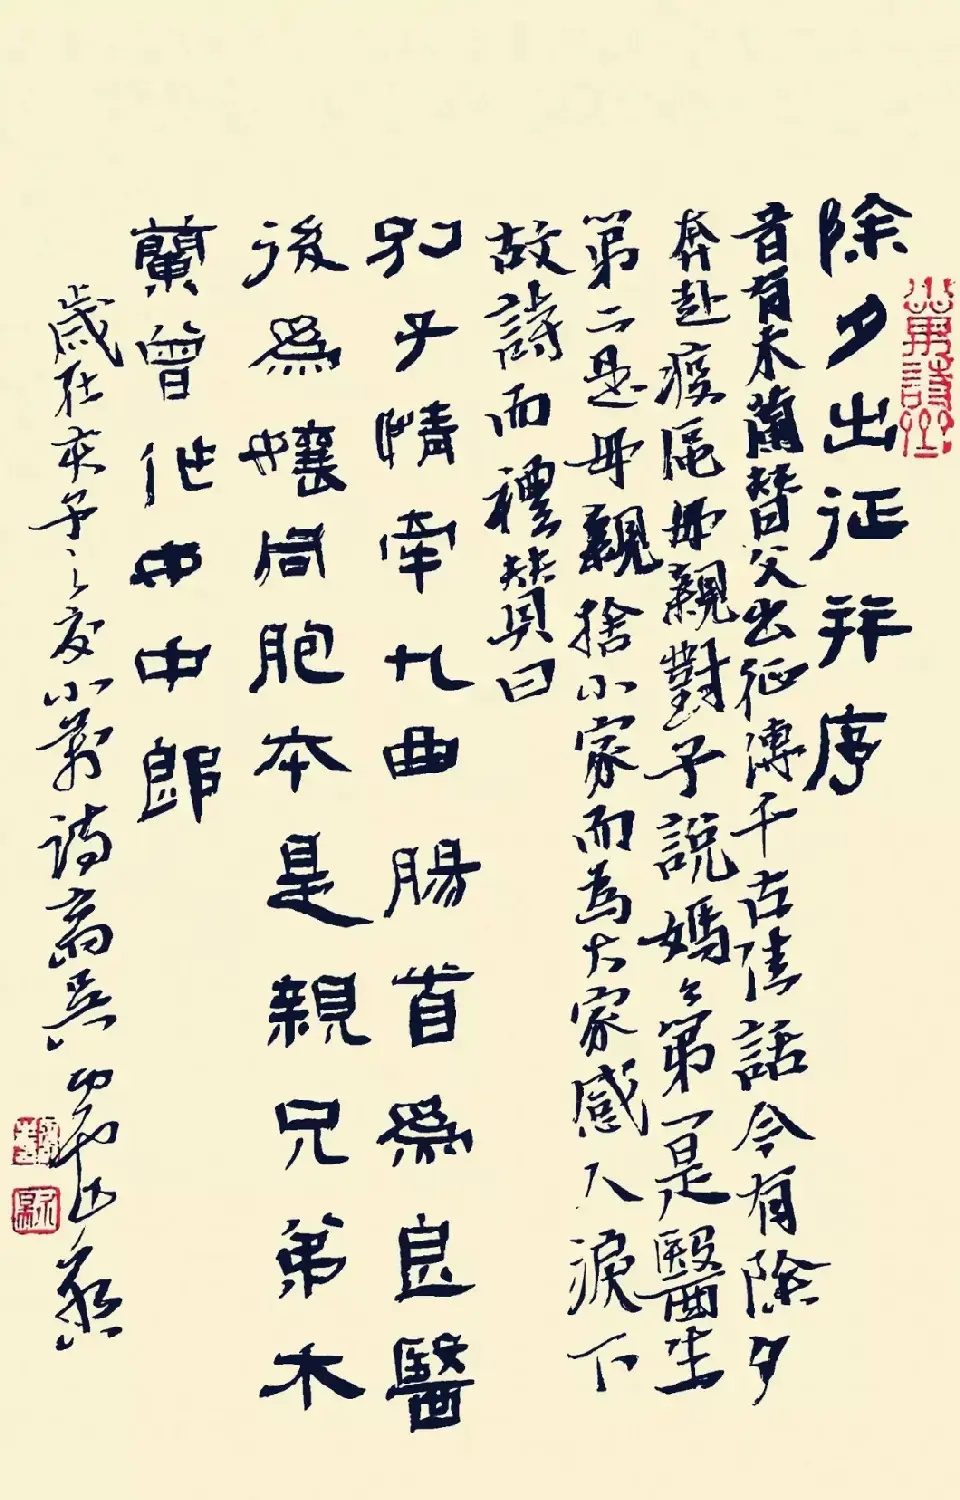 除夕出征并序
昔有木蘭替父出征傳千古佳話今有除夕
奔赴疫區母親對子說媽々第一是醫生
第二是母親捨小家而為大家感人淚下
故詩而禮贊曰
別子情牽九曲腸首為良醫
後為孃同胞本是親兄弟木
蘭曾作女中郎
歲在庚子之友小莆詩高興